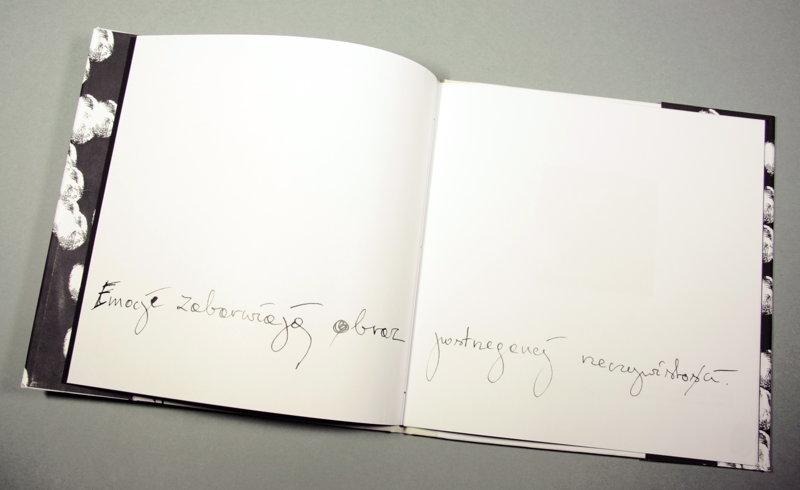 Emocje zabarwiają obraz postrzeganej rzeczywistości.